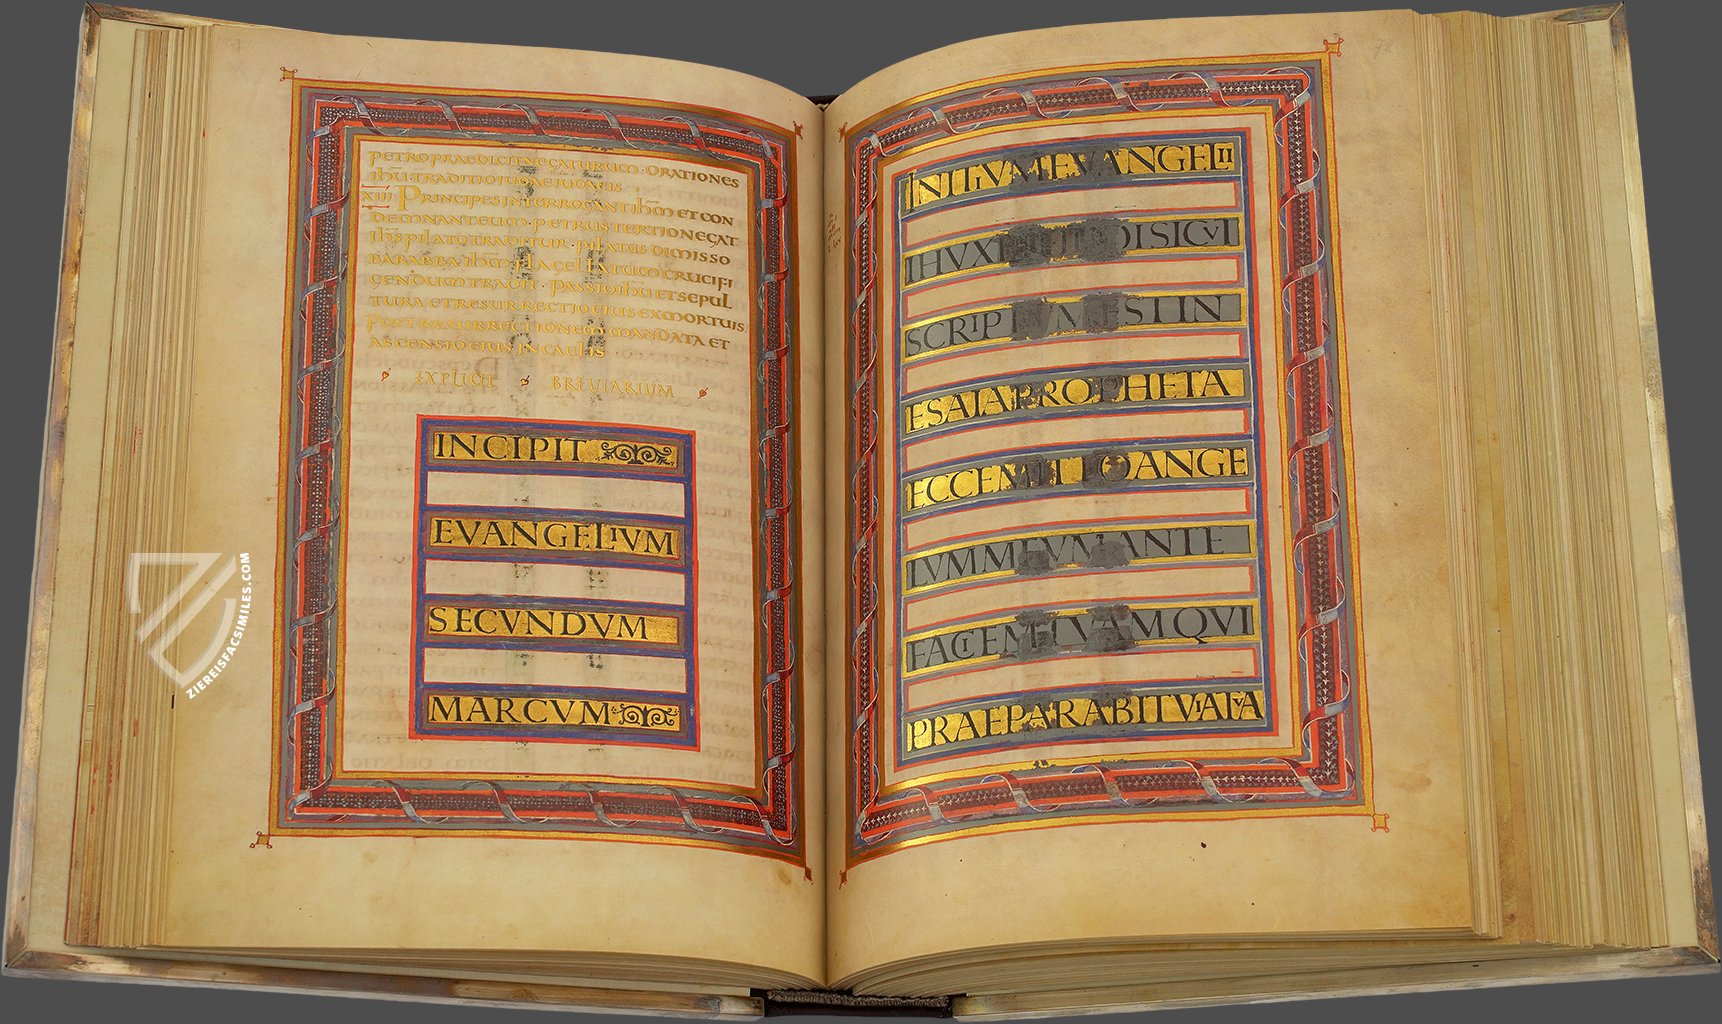 PETRO PRAEDICIT NEGATURUM · ORATIONES
IHU · TRADITIO IUDAE RIOVEIS
XIII PRINCIPES INTERROGANT IHM ET CON
DEMNANT EUM · PETRUS TERTIO NEGAT
IHS PILATO TRADITUR · PILATUS DIMISSO
BARABBA IHM FLAGELLATUM CRUCIFI
GENDUM TRADIT · PASSIO IHU ET SEPUL
TURA ET RESURRECTIO EIUS EX MORTUIS
POST RESURRECTIONEM MANDATA ET
ASCENSIO EIUS IN CAELIS
EXPLICIT BREVIARIUM
INCIPIT
EVANGELIVM
SECVNDVM
MARCVM
INITIVM EVANGELII
IHV XPI FILII DI SICVT
SCRIPTVM EST IN
ESAIA PROPHETA
ECCE MITTO ANGE
LVM MEVM ANTE
FACIEM TVAM QVI
PRAEPARABIT VIA TVA
78
ZIEREISFACSIMILES.COM